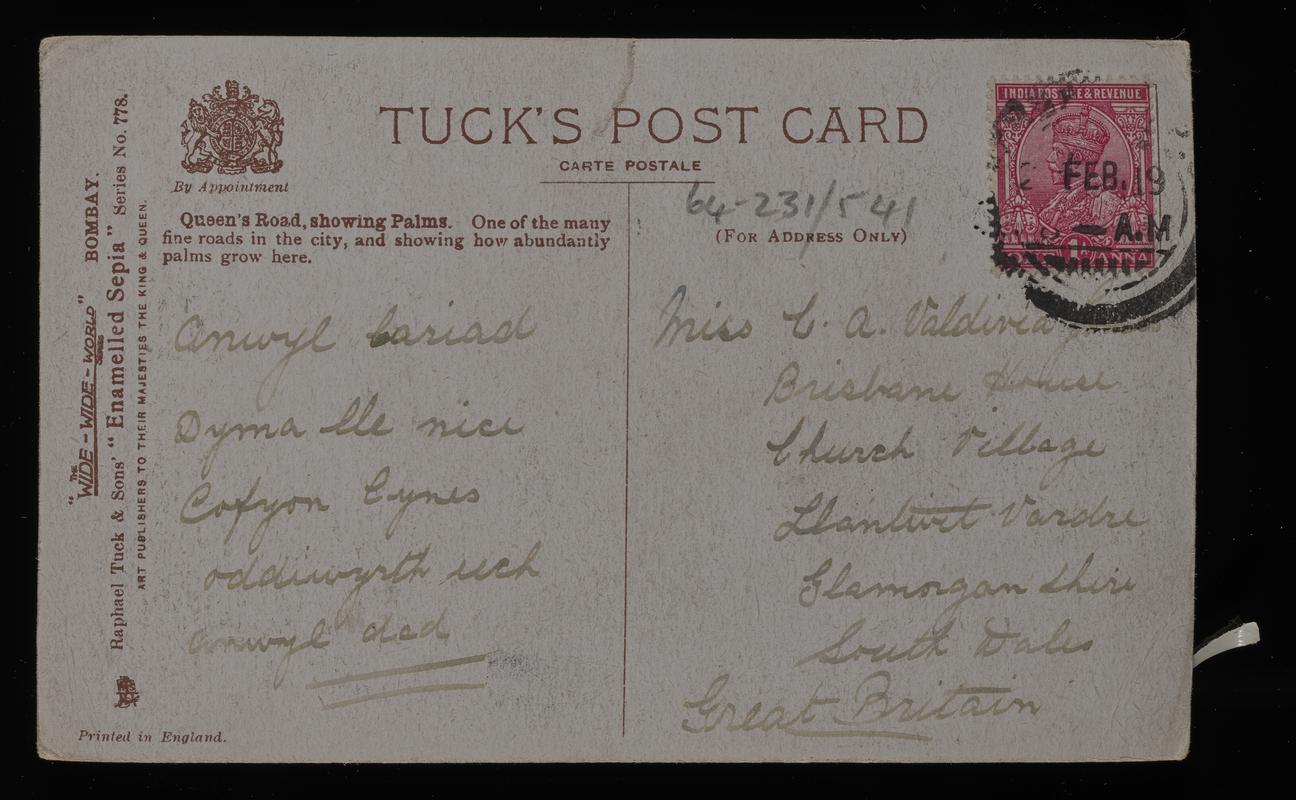 TUCK'S POST CARD
CARTE POSTALE
By Appointment
64-231/541
(FOR ADDRESS ONLY)
Queen's Road, showing Palms. One of the many
fine roads in the city, and showing how abundantly
palms grow here.
Anwyl Cariad
Dyma lle nice
Cofyon Cynes
oddiwyrth eich
anwyl dad
Miss C. A. Valdivia
Brisbane House
Church Village
Llantwit Vardre
Glamorgan Shire
South Wales
Great Britain
INDIA POSTAGE & REVENUE
FEB. 19
A.M
ANNA
"THE WIDE-WIDE-WORLD" SERIES BOMBAY.
Raphael Tuck & Sons' "Enamelled Sepia" Series No. 778.
ART PUBLISHERS TO THEIR MAJESTIES THE KING & QUEEN.
Printed in England.